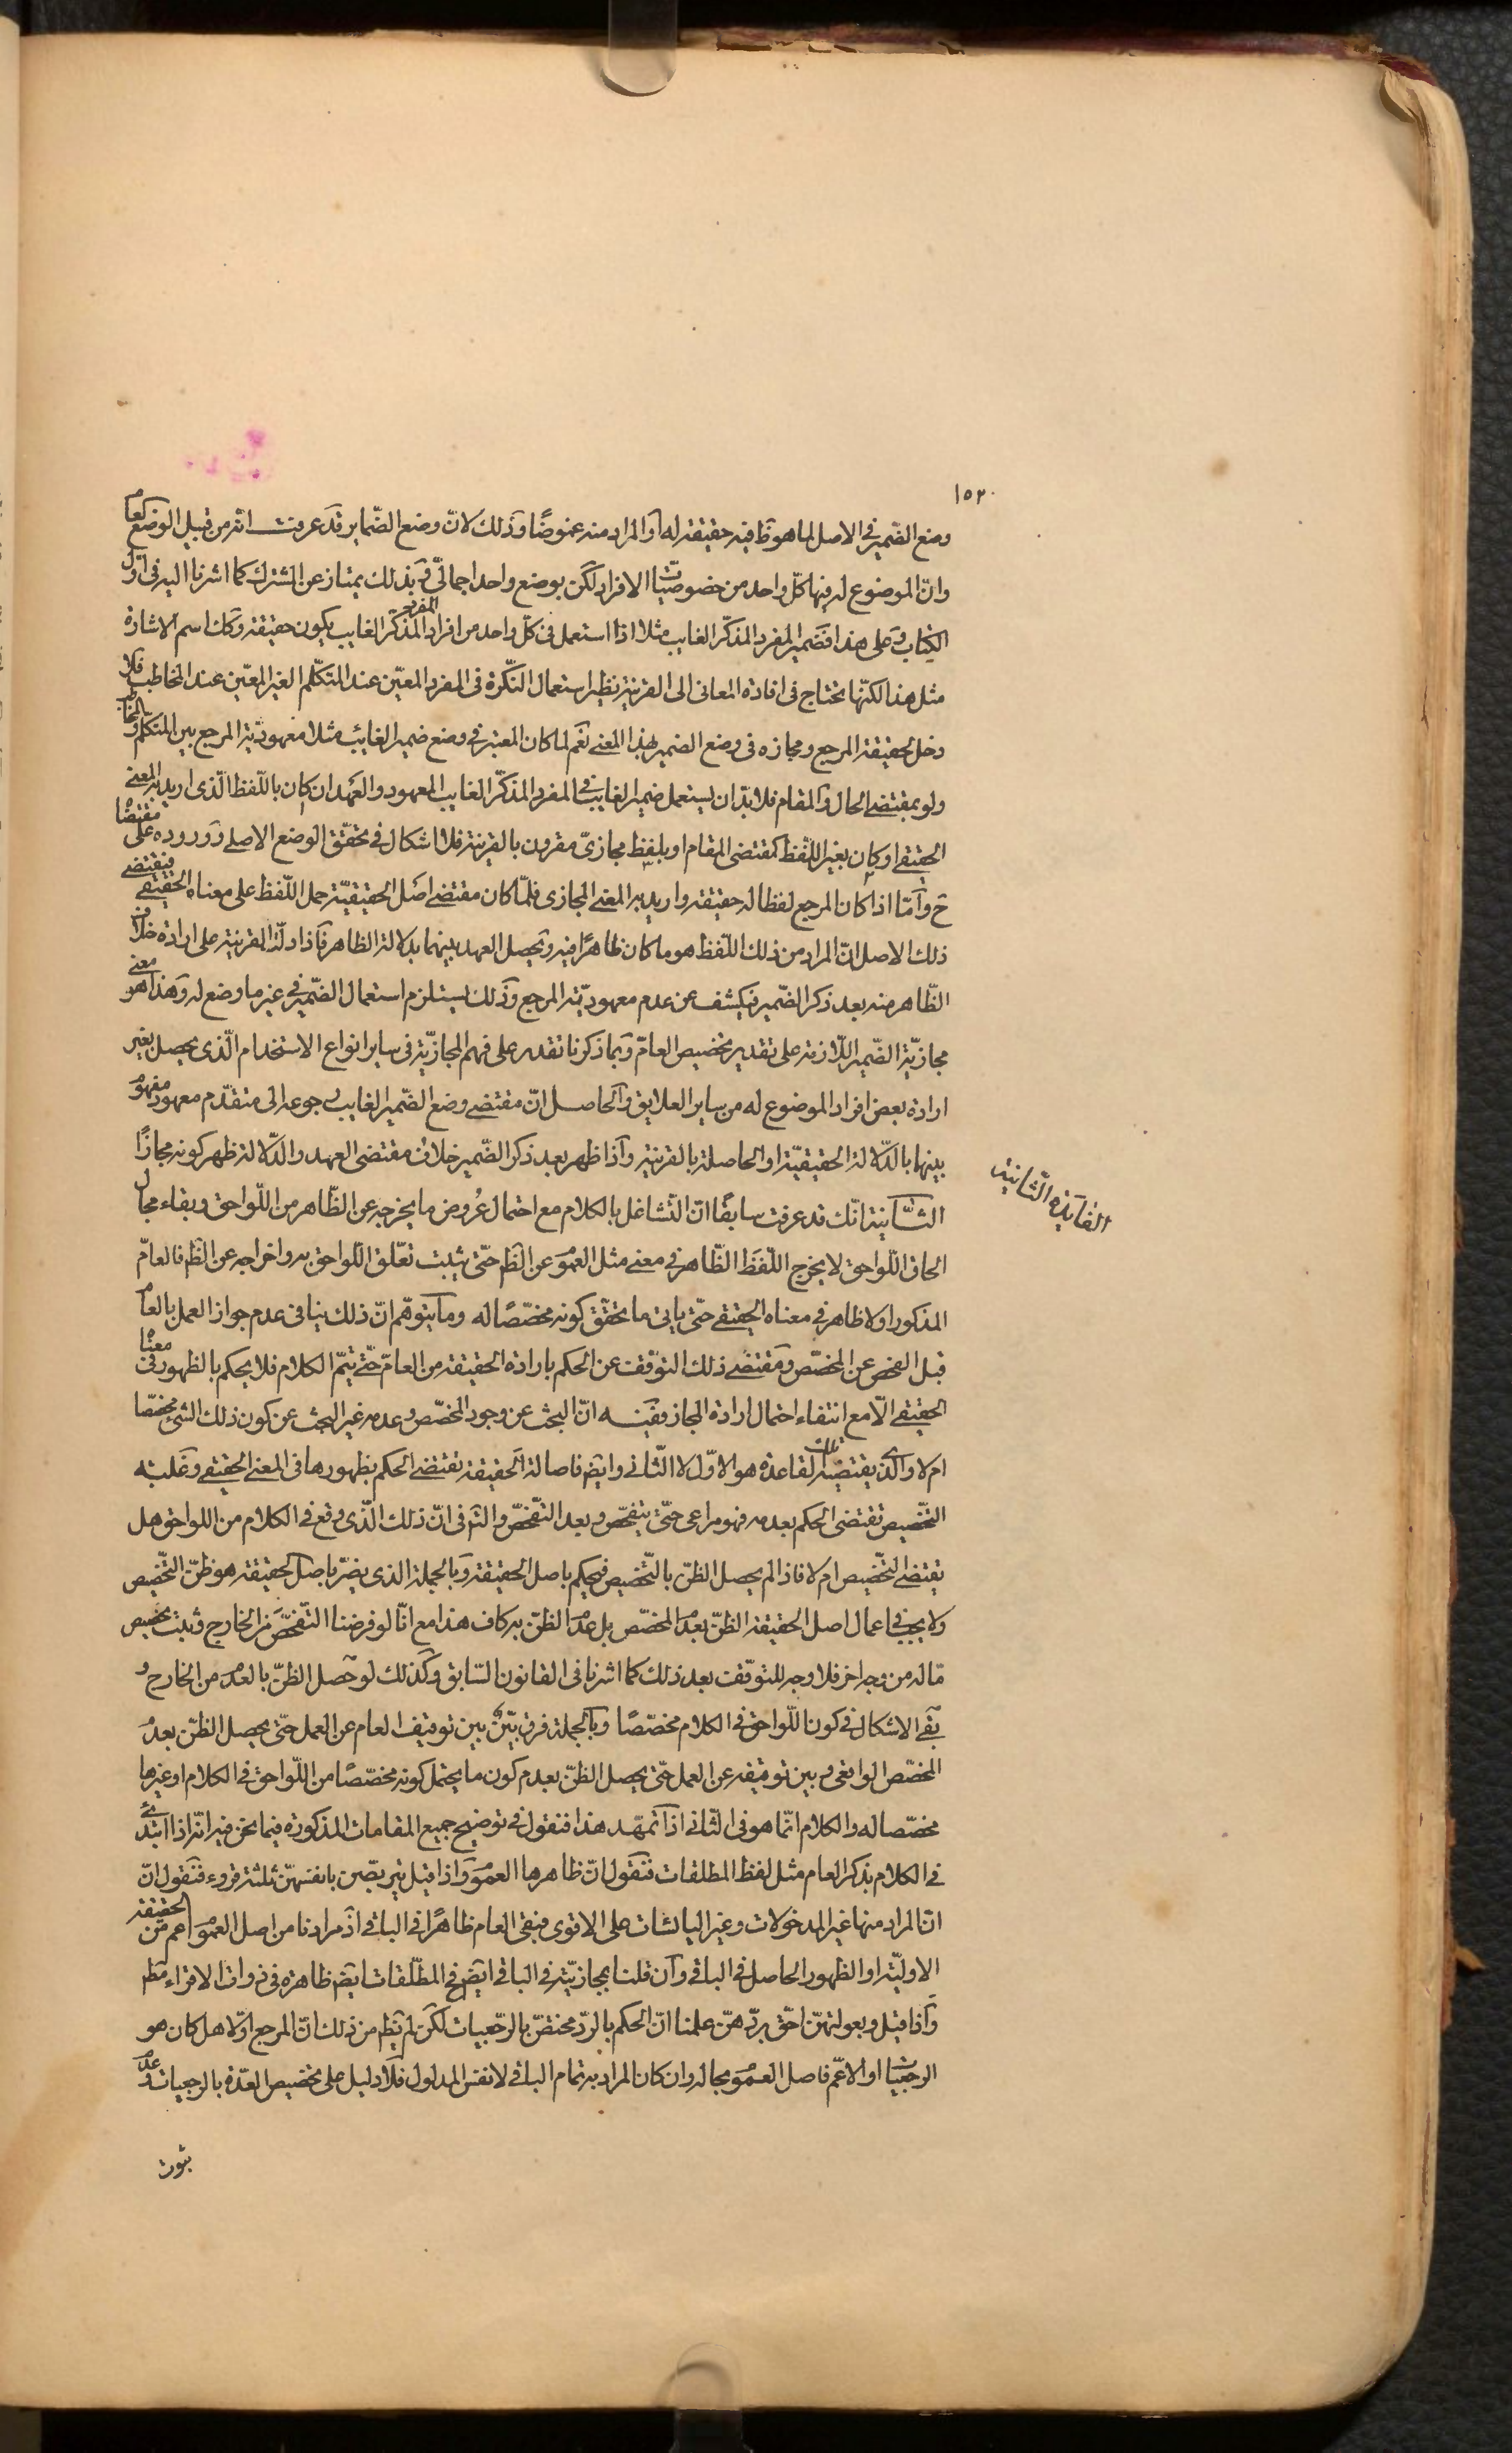 ١٥٢
وضع الضّمير فى الاصل لما هو ظ فيه حقيقة له او المراد منه غموضًا وَذلك لانّ وضع الضّماير قد عرفت انّه من قبيل الوضع العام
وانّ الموضوع له فيها كلّ واحد من خصوصيّات الافراد لكن بوضع واحد اجمالىّ وَبذلك يمتاز عن المشترك كما اشرنا اليه فى اوّل
الكتاب وَعلى هذا فضمير المفرد المذكّر الغايب مثلا اذا استعمل فى كلّ واحد من افراد المفرد المذكّر الغايب يكون حقيقة وكك اسم الاشارة
مثل هذا لكنّها يحتاج فى افادة المعانى الى القرينة نظير استعمال النّكرة فى المفرد المعيّن عند المتكلّم الغير المعيّن عند المخاطب فلا
دخل لحقيقة المرجع ومجازه فى وضع الضمير بهذا المعنى نَعَم لما كان المعتبر فى وضع ضمير الغائب مثلا معهوديّة المرجع بين المتكلّم والمخاطب
ولو بمقتضى الحال والمقام فلا بدّ ان يستعمل ضمير الغايب فى المفرد المذكّر الغايب المعهود والعَهد ان كان باللّفظ الّذى اريد به المعنى
الحقيقى او كان بغير اللّفظ كمقتضى المقام او بلفظ مجازىّ مقرون بالقرينة فلا اشكال فى تحقّق الوضع الاصلى وَوروده على مقتضاه
ح وَامّا اذا كان المرجع لفظا له حقيقة واريد به المعنى المجازى فلمّا كان مقتضى اصل الحقيقيّة حمل اللّفظ على معناه الحقيقى فيقتضى
ذلك الاصل انّ المراد من ذلك اللّفظ هو ما كان ظاهرًا فيه وَيحصل العهد بينهما بدلالة الظاهر فَاذا دلّت القرينة على ارادة خلاف
الظّاهر منه بعد ذكر الضّمير فيكشف عن عدم معهوديّة المرجع وَذلك يستلزم استعمال الضّمير فى غير ما وضع له وَهذا هو معنى
مجازيّة الضّمير اللّازمة على تقدير تخصيص العامّ وَبما ذكرنا تقدر على فهم المجازيّة فى ساير انواع الاستخدام الّذى يحصل بغير
ارادة بعض افراد الموضوع له من ساير العلايق وَالحاصل انّ مقتضى وضع الضّمير الغايب رجوعه الى متقدّم معهود مفهوم
بينهما بالدّلالة الحقيقيّة او الحاصلة بالقرينة وَاذا ظهر بعد ذكر الضّمير خلاف مقتضى العهد والدّلالة ظهر كونه مجازًا
الفايَدة الثّانية
الثّانية انّك قد عرفت سابقًا انّ التّشاغل بالكلام مع احتمال عُروض ما يخرجه عن الظّاهر من اللّواحق وبقاء مجال
الحاق اللّواحق لا يخرج اللّفظ الظّاهر فى معنى مثل العموم عن الظَم حتّى يثبت تعّلق اللّواحق به واخراجه عن الظم فالعامّ
المذكور اولا ظاهر فى معناه الحقيقى حتّى ياتى ما تحقّق كونه مخصّصًا له وما يتوهّم انّ ذلك ينافى عدم جواز العمل بالعام
قبل الفحص عن المخصّص ومقتضى ذلك التوقّف عن الحكم بارادة الحقيقة من العامّ حتّى يتمّ الكلام فلا يحكم بالظهور فى معناه
الحقيقى الّا مع انتفاء احتمال ارادة المجاز وَفيه انّ البحث عن وجود المخصّص وعدمه غير البحث عن كون ذلك الشئ مخصّصا
ام لا والّذى يقتضيه تلك القاعدة هو الاوّل لا الثّانى وايضَ فاصالة الحقيقة تقتضى الحكم بظهورها فى المعنى الحقيقى وغلبة
التّخصيص تقتضى الحكم بعدمه فهو مراعى حتّى يتفحّص وبعد التّفحّص والتم فى انّ ذلك الّذى وقع فى الكلام من اللواحق هل
يقتضى التّخصيص ام لا فاذا لم يحصل الظنّ بالتّخصيص فيحكم باصل الحقيقة وَبالجملة الذى يضرّ باصل الحقيقة هو ظنّ التّخصيص
ولا يجب فى اعمال اصل الحقيقة الظنّ بعدم المخصّص بل عدم الظنّ به كاف هذا مع انّا لو فرضنا التّفحّص من الخارج وثبت تخصيص
مّا له من وجه اخر فلا وجه للتوقّف بعد ذلك كما اشرنا فى القانون السّابق وَكذلك لو حَصل الظنّ بالعدم من الخارج و
بقى الاشكال فى كون اللّواحق فى الكلام مخصّصًا وَبالجملة فرق بيّن بين توقيف العام عن العمل حتّى يحصل الظنّ بعدم
المخصّص الواقعى وبين توقيفه عن العمل حتّى يحصل الظنّ بعدم كون ما يحتمل كونه مخصّصًا من اللّواحق فى الكلام او غيرها
مخصّصا له والكلام انّما هو فى الثّانى اذا تمهّد هذا فنقول فى توضيح جميع المقامات المذكورة فيما نحن فيه انّه اذا ابتدئ
فى الكلام بذكر العام مثل لفظ المطلقات فنَقول انّ ظاهرها العموم وَاذا قيل يتربّصن بانفسهنّ ثلثة قروء فنقول انّ
انّ المراد منها غير المدخولات وغير اليائسات على الاقوى فبقى العام ظاهرًا فى الباقى اذ مرادنا من اصل العموم اعم من الحقيقة
الاوليّة او الظهور الحاصل فى الباقى وَان قلنا بمجازيّته فى الباقى ايضَ فى المطّلقات ايضَ ظاهرة فى ذوات الاقراء مَظم
وَاذا قيل وبعولتهنّ احّق بردّهنّ علمنا انّ الحكم بالردّ مختصّ بالرجّعيات لكن لم يَظم من ذلك انّ المرجع اوّلا هل كان هو
الرجعيّات او الاعّم فاصل العموم بحاله وان كان المراد به تمام الباقى لا نفس المدلول فلا دليل على تخصيص العدّة بالرجعيات وعدم
ثبوت